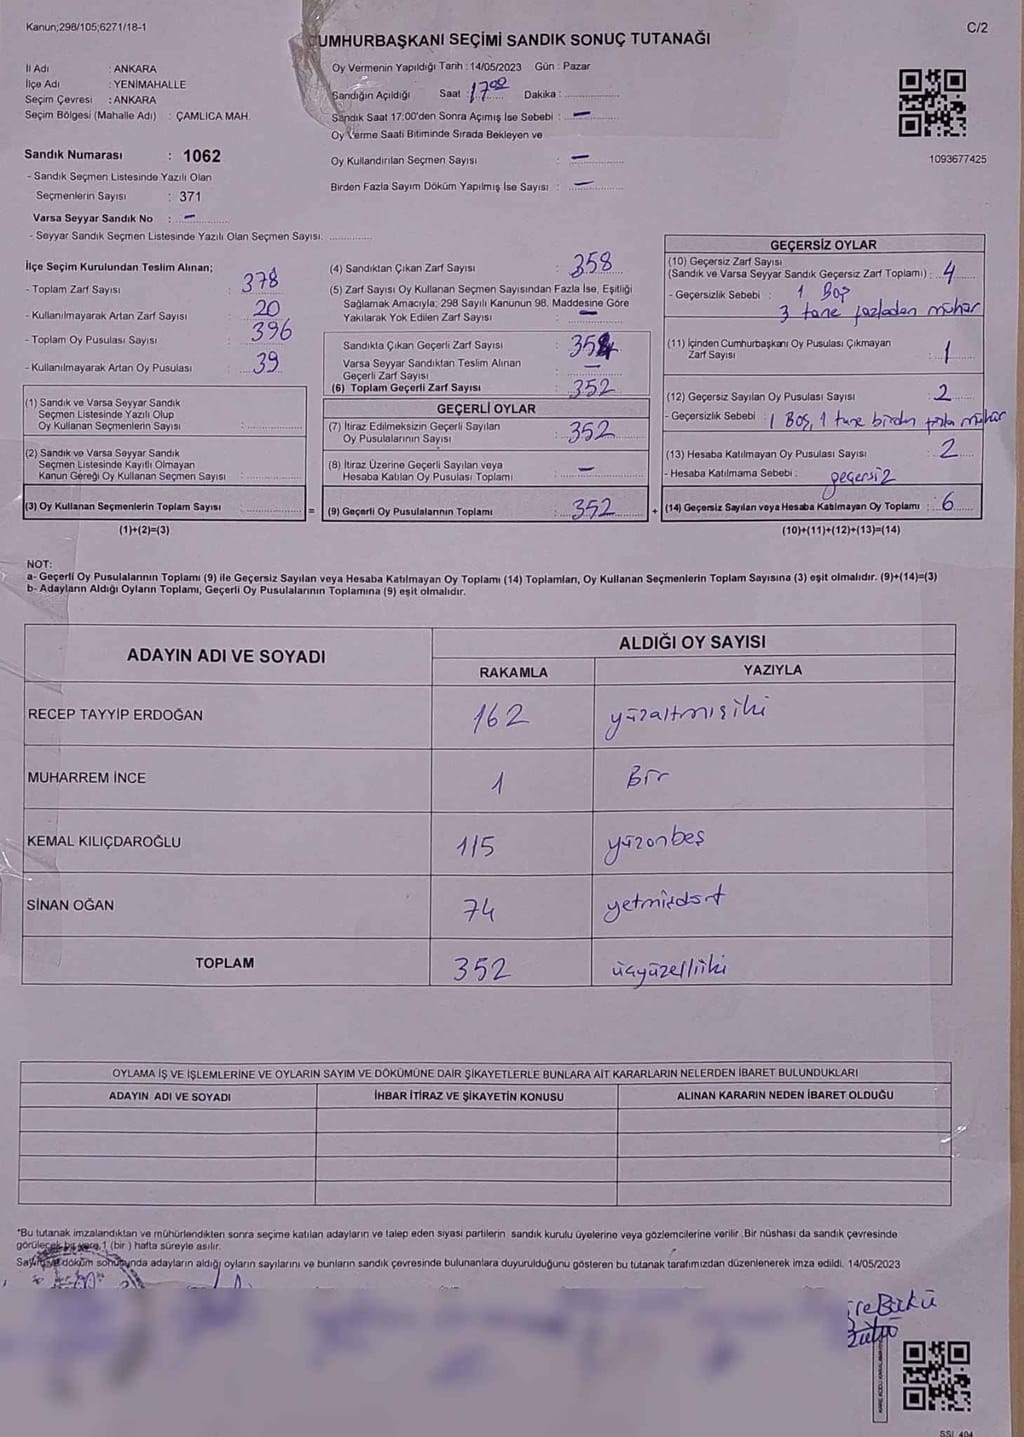 Kanun;298/105;6271/18-1
C/2
CUMHURBAŞKANI SEÇİMİ SANDIK SONUÇ TUTANAĞI
İl Adı : ANKARA
İlçe Adı : YENİMAHALLE
Seçim Çevresi : ANKARA
Seçim Bölgesi (Mahalle Adı) : ÇAMLICA MAH.
Sandık Numarası : 1062
- Sandık Seçmen Listesinde Yazılı Olan
Seçmenlerin Sayısı : 371
Varsa Seyyar Sandık No : –
- Seyyar Sandık Seçmen Listesinde Yazılı Olan Seçmen Sayısı: ............
Oy Vermenin Yapıldığı Tarih : 14/05/2023 Gün : Pazar
Sandığın Açıldığı Saat : 17:00 Dakika : ............
Sandık Saat 17:00'den Sonra Açımış İse Sebebi : –
Oy Verme Saati Bitiminde Sırada Bekleyen ve
Oy Kullandırılan Seçmen Sayısı : –
Birden Fazla Sayım Döküm Yapılmış İse Sayısı : –
1093677425
İlçe Seçim Kurulundan Teslim Alınan;
- Toplam Zarf Sayısı : 378
- Kullanılmayarak Artan Zarf Sayısı : 20
- Toplam Oy Pusulası Sayısı : 396
- Kullanılmayarak Artan Oy Pusulası : 39
(1) Sandık ve Varsa Seyyar Sandık
Seçmen Listesinde Yazılı Olup
Oy Kullanan Seçmenlerin Sayısı : ............
(2) Sandık ve Varsa Seyyar Sandık
Seçmen Listesinde Kayıtlı Olmayan
Kanun Gereği Oy Kullanan Seçmen Sayısı : ............
(3) Oy Kullanan Seçmenlerin Toplam Sayısı : ............ =
(1)+(2)=(3)
(4) Sandıktan Çıkan Zarf Sayısı : 358
(5) Zarf Sayısı Oy Kullanan Seçmen Sayısından Fazla İse, Eşitliği
Sağlamak Amacıyla; 298 Sayılı Kanunun 98. Maddesine Göre
Yakılarak Yok Edilen Zarf Sayısı : –
Sandıkta Çıkan Geçerli Zarf Sayısı : 354
Varsa Seyyar Sandıktan Teslim Alınan
Geçerli Zarf Sayısı : –
(6) Toplam Geçerli Zarf Sayısı : 352
GEÇERLİ OYLAR
(7) İtiraz Edilmeksizin Geçerli Sayılan
Oy Pusulalarının Sayısı : 352
(8) İtiraz Üzerine Geçerli Sayılan veya
Hesaba Katılan Oy Pusulası Toplamı : –
(9) Geçerli Oy Pusulalarının Toplamı : 352 +
GEÇERSİZ OYLAR
(10) Geçersiz Zarf Sayısı
(Sandık ve Varsa Seyyar Sandık Geçersiz Zarf Toplamı) : 4
- Geçersizlik Sebebi : 1 Boş
3 tane fazladan mühür
(11) İçinden Cumhurbaşkanı Oy Pusulası Çıkmayan
Zarf Sayısı : 1
(12) Geçersiz Sayılan Oy Pusulası Sayısı : 2
- Geçersizlik Sebebi : 1 Boş, 1 tane birden fazla mühür
(13) Hesaba Katılmayan Oy Pusulası Sayısı : 2
- Hesaba Katılmama Sebebi : geçersiz
(14) Geçersiz Sayılan veya Hesaba Katılmayan Oy Toplamı : 6
(10)+(11)+(12)+(13)=(14)
NOT:
a- Geçerli Oy Pusulalarının Toplamı (9) ile Geçersiz Sayılan veya Hesaba Katılmayan Oy Toplamı (14) Toplamları, Oy Kullanan Seçmenlerin Toplam Sayısına (3) eşit olmalıdır. (9)+(14)=(3)
b- Adayların Aldığı Oyların Toplamı, Geçerli Oy Pusulalarının Toplamına (9) eşit olmalıdır.
ADAYIN ADI VE SOYADI
ALDIĞI OY SAYISI
RAKAMLA YAZIYLA
RECEP TAYYİP ERDOĞAN 162 yüzaltmışiki
MUHARREM İNCE 1 Bir
KEMAL KILIÇDAROĞLU 115 yüzonbeş
SİNAN OĞAN 74 yetmişdört
TOPLAM 352 üçyüzelliiki
OYLAMA İŞ VE İŞLEMLERİNE VE OYLARIN SAYIM VE DÖKÜMÜNE DAİR ŞİKAYETLERLE BUNLARA AİT KARARLARIN NELERDEN İBARET BULUNDUKLARI
ADAYIN ADI VE SOYADI İHBAR İTİRAZ VE ŞİKAYETİN KONUSU ALINAN KARARIN NEDEN İBARET OLDUĞU
*Bu tutanak imzalandıktan ve mühürlendikten sonra seçime katılan adayların ve talep eden siyasi partilerin sandık kurulu üyelerine veya gözlemcilerine verilir. Bir nüshası da sandık çevresinde
görülecek bir yere 1 (bir) hafta süreyle asılır.
Sayım ve döküm sonucunda adayların aldığı oyların sayılarını ve bunların sandık çevresinde bulunanlara duyurulduğunu gösteren bu tutanak tarafımızdan düzenlenerek imza edildi. 14/05/2023
SSI_404